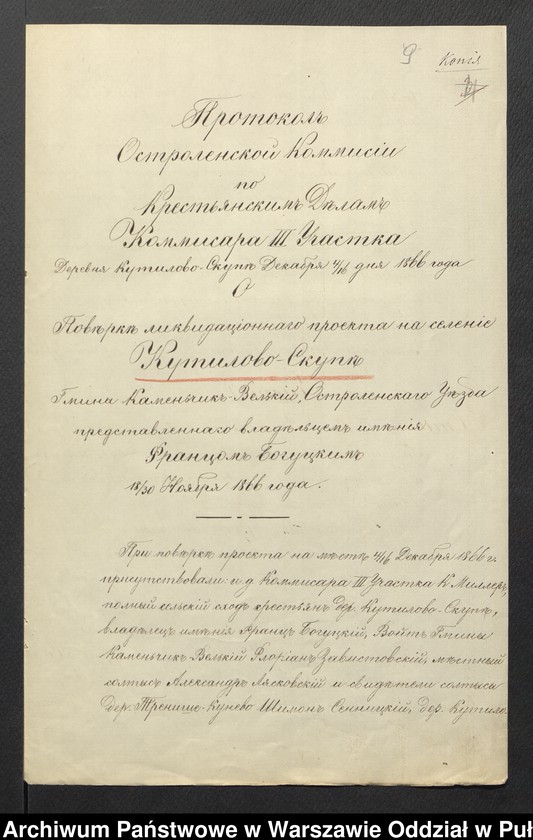 9
Копія.
Протоколъ
Остроленской Коммисіи
по
Крестьянскимъ Дѣламъ
Коммисара III Участка
Деревня Кутилово-Скупе Декабря 4/16 дня 1866 года
О
Повѣркѣ ликвидаціоннаго проекта на селеніе
Кутилово-Скупе
Гмина Каменьчик-Велькій, Остроленскаго Уѣзда
представленнаго владѣльцемъ имѣнія
Францомъ Богуцкимъ
18/30 Ноября 1866 года.
При повѣркѣ проекта на мѣстѣ 4/16 Декабря 1866 г.
присутствовали и д Коммисара III Участка К. Миллеръ,
полный сельскій сходъ крестьянъ дер. Кутилово-Скупе,
владѣлецъ имѣнія Францъ Богуцкій, Войтъ Гмины
Каменьчик-Велькій Флоріанъ Завистовскій, мѣстный
солтысъ Александръ Лясковскій и свидѣтели солтысы
дер. Кунево Шимонъ Сенницкій, дер. Кутило
Archiwum Państwowe w Warszawie Oddział w Puł